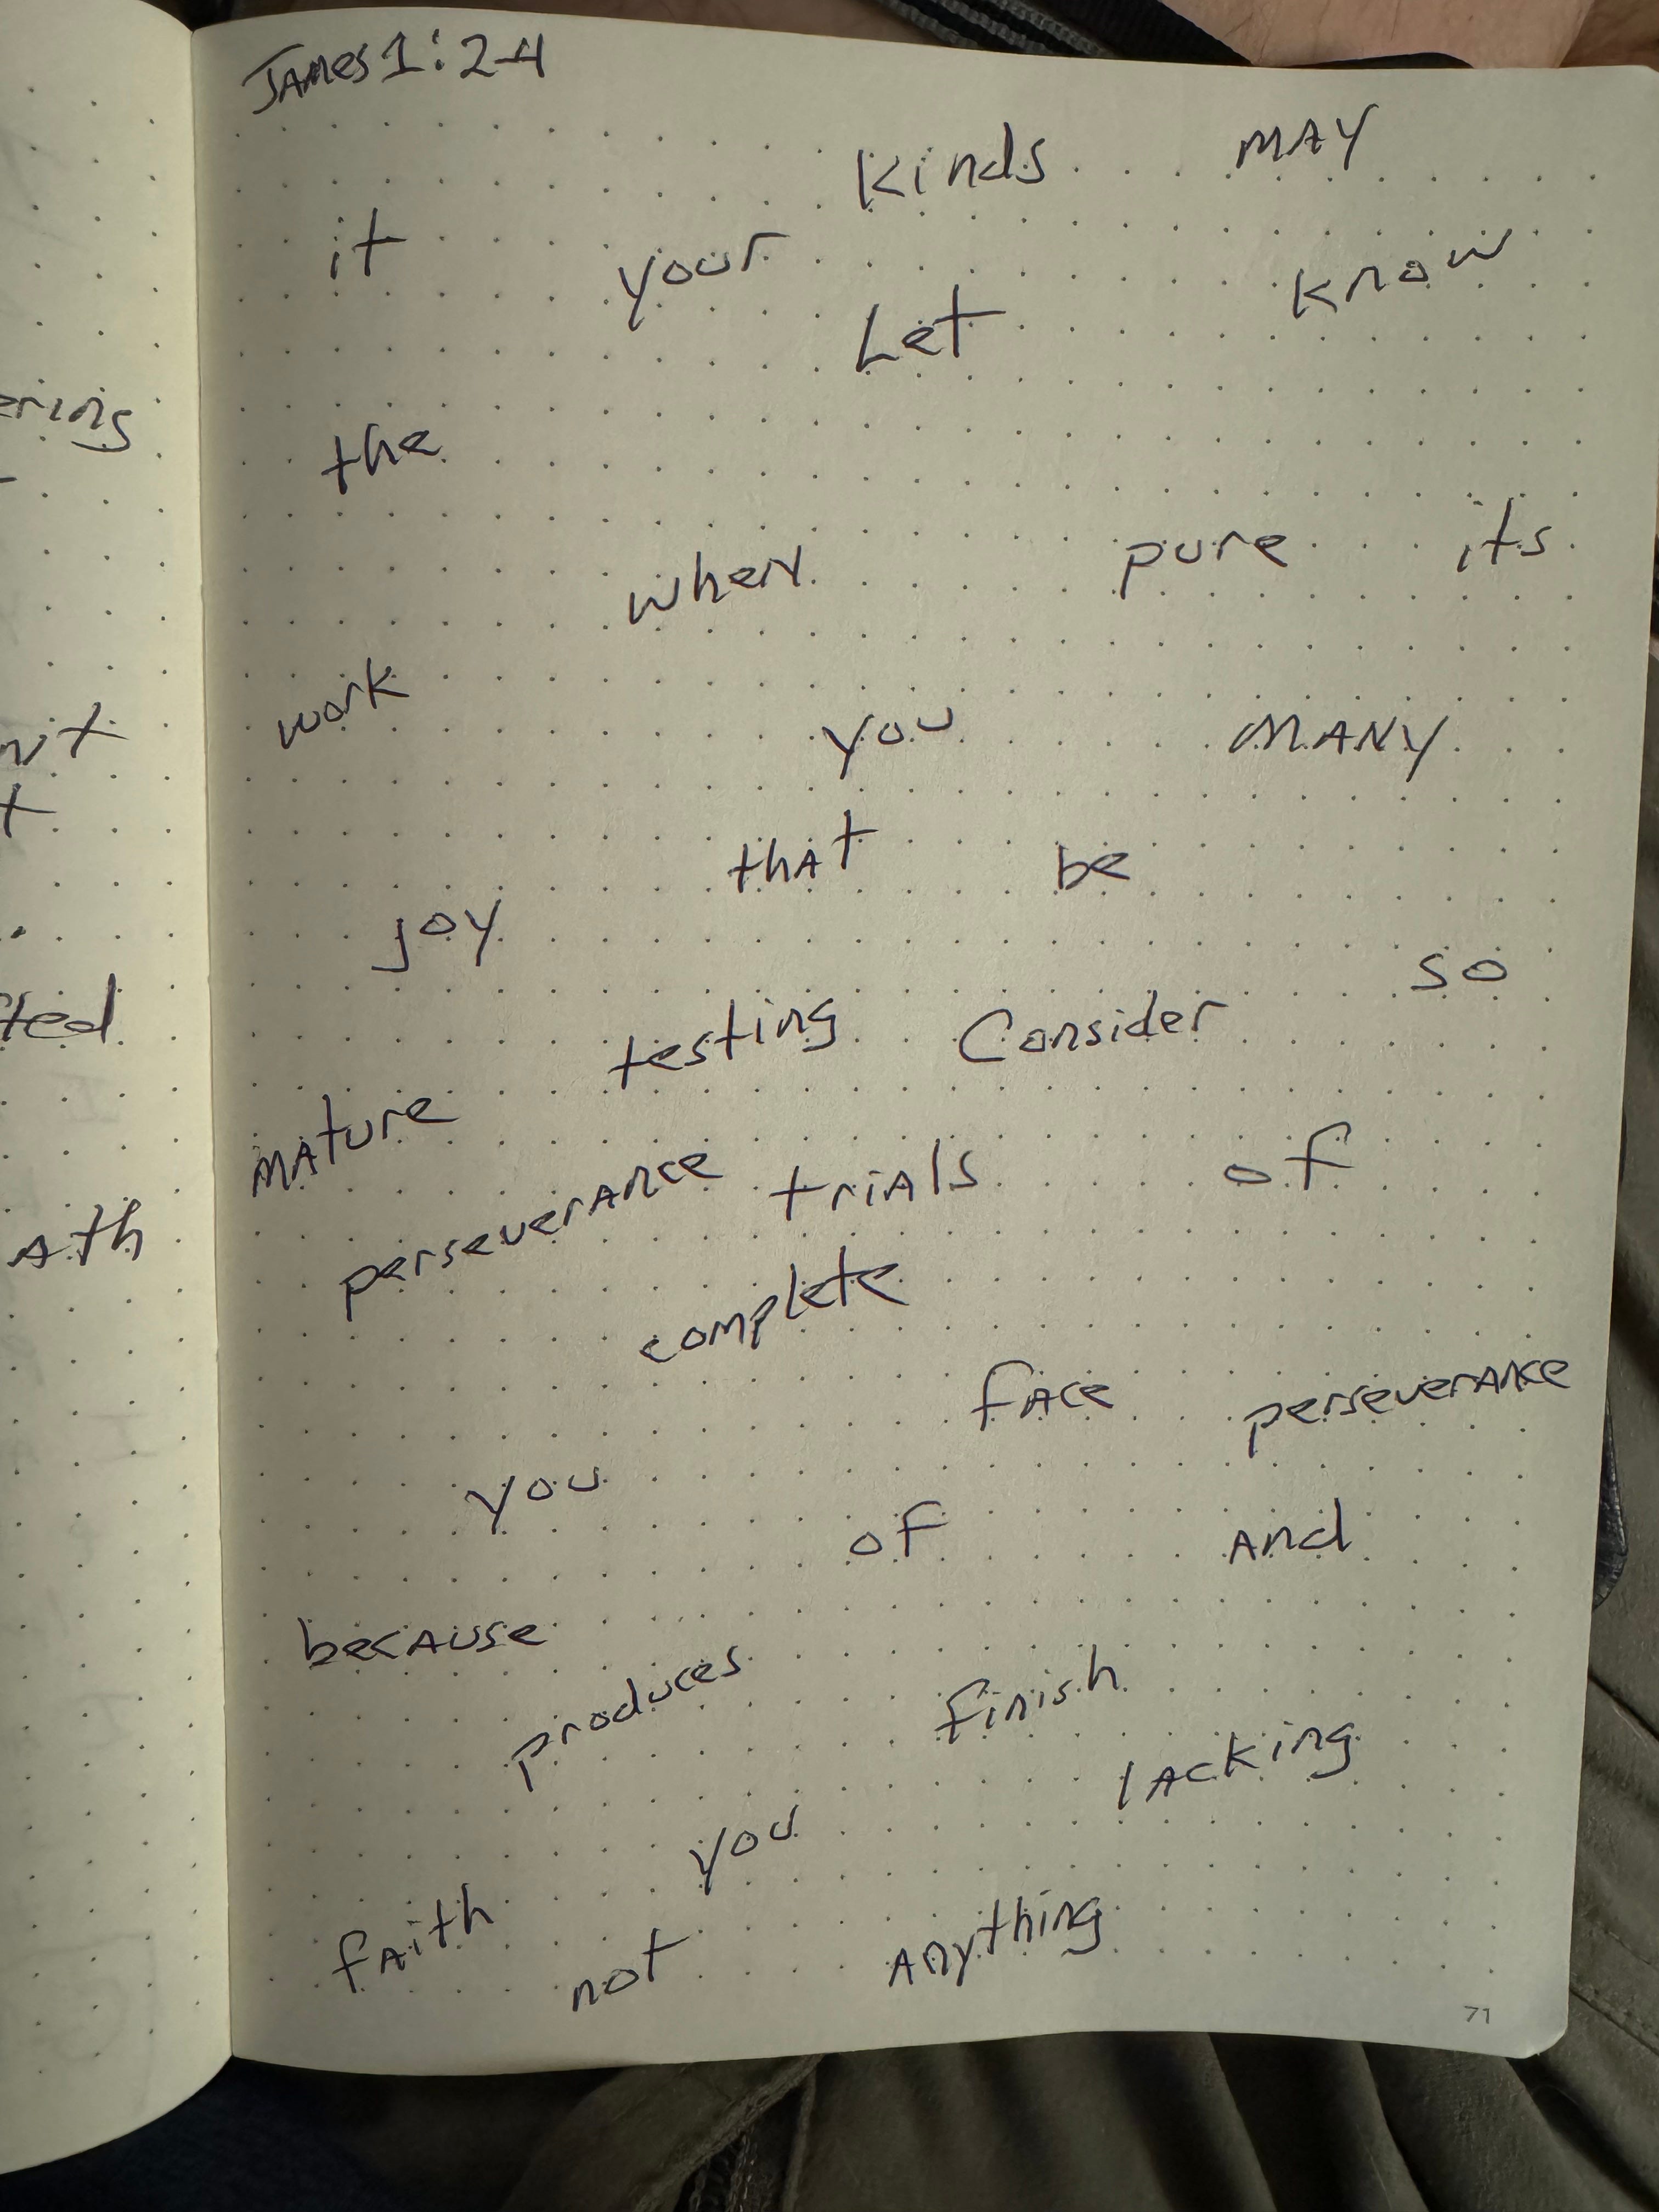 James 1:2-4
kinds MAY
it your know
Let
the
when pure its
work you MANY
that be
joy so
testing Consider
mature
perseverance trials of
complete
face perseverance
you of And
because
produces finish
lacking
you
faith not Anything
71
ering
ted
Ath